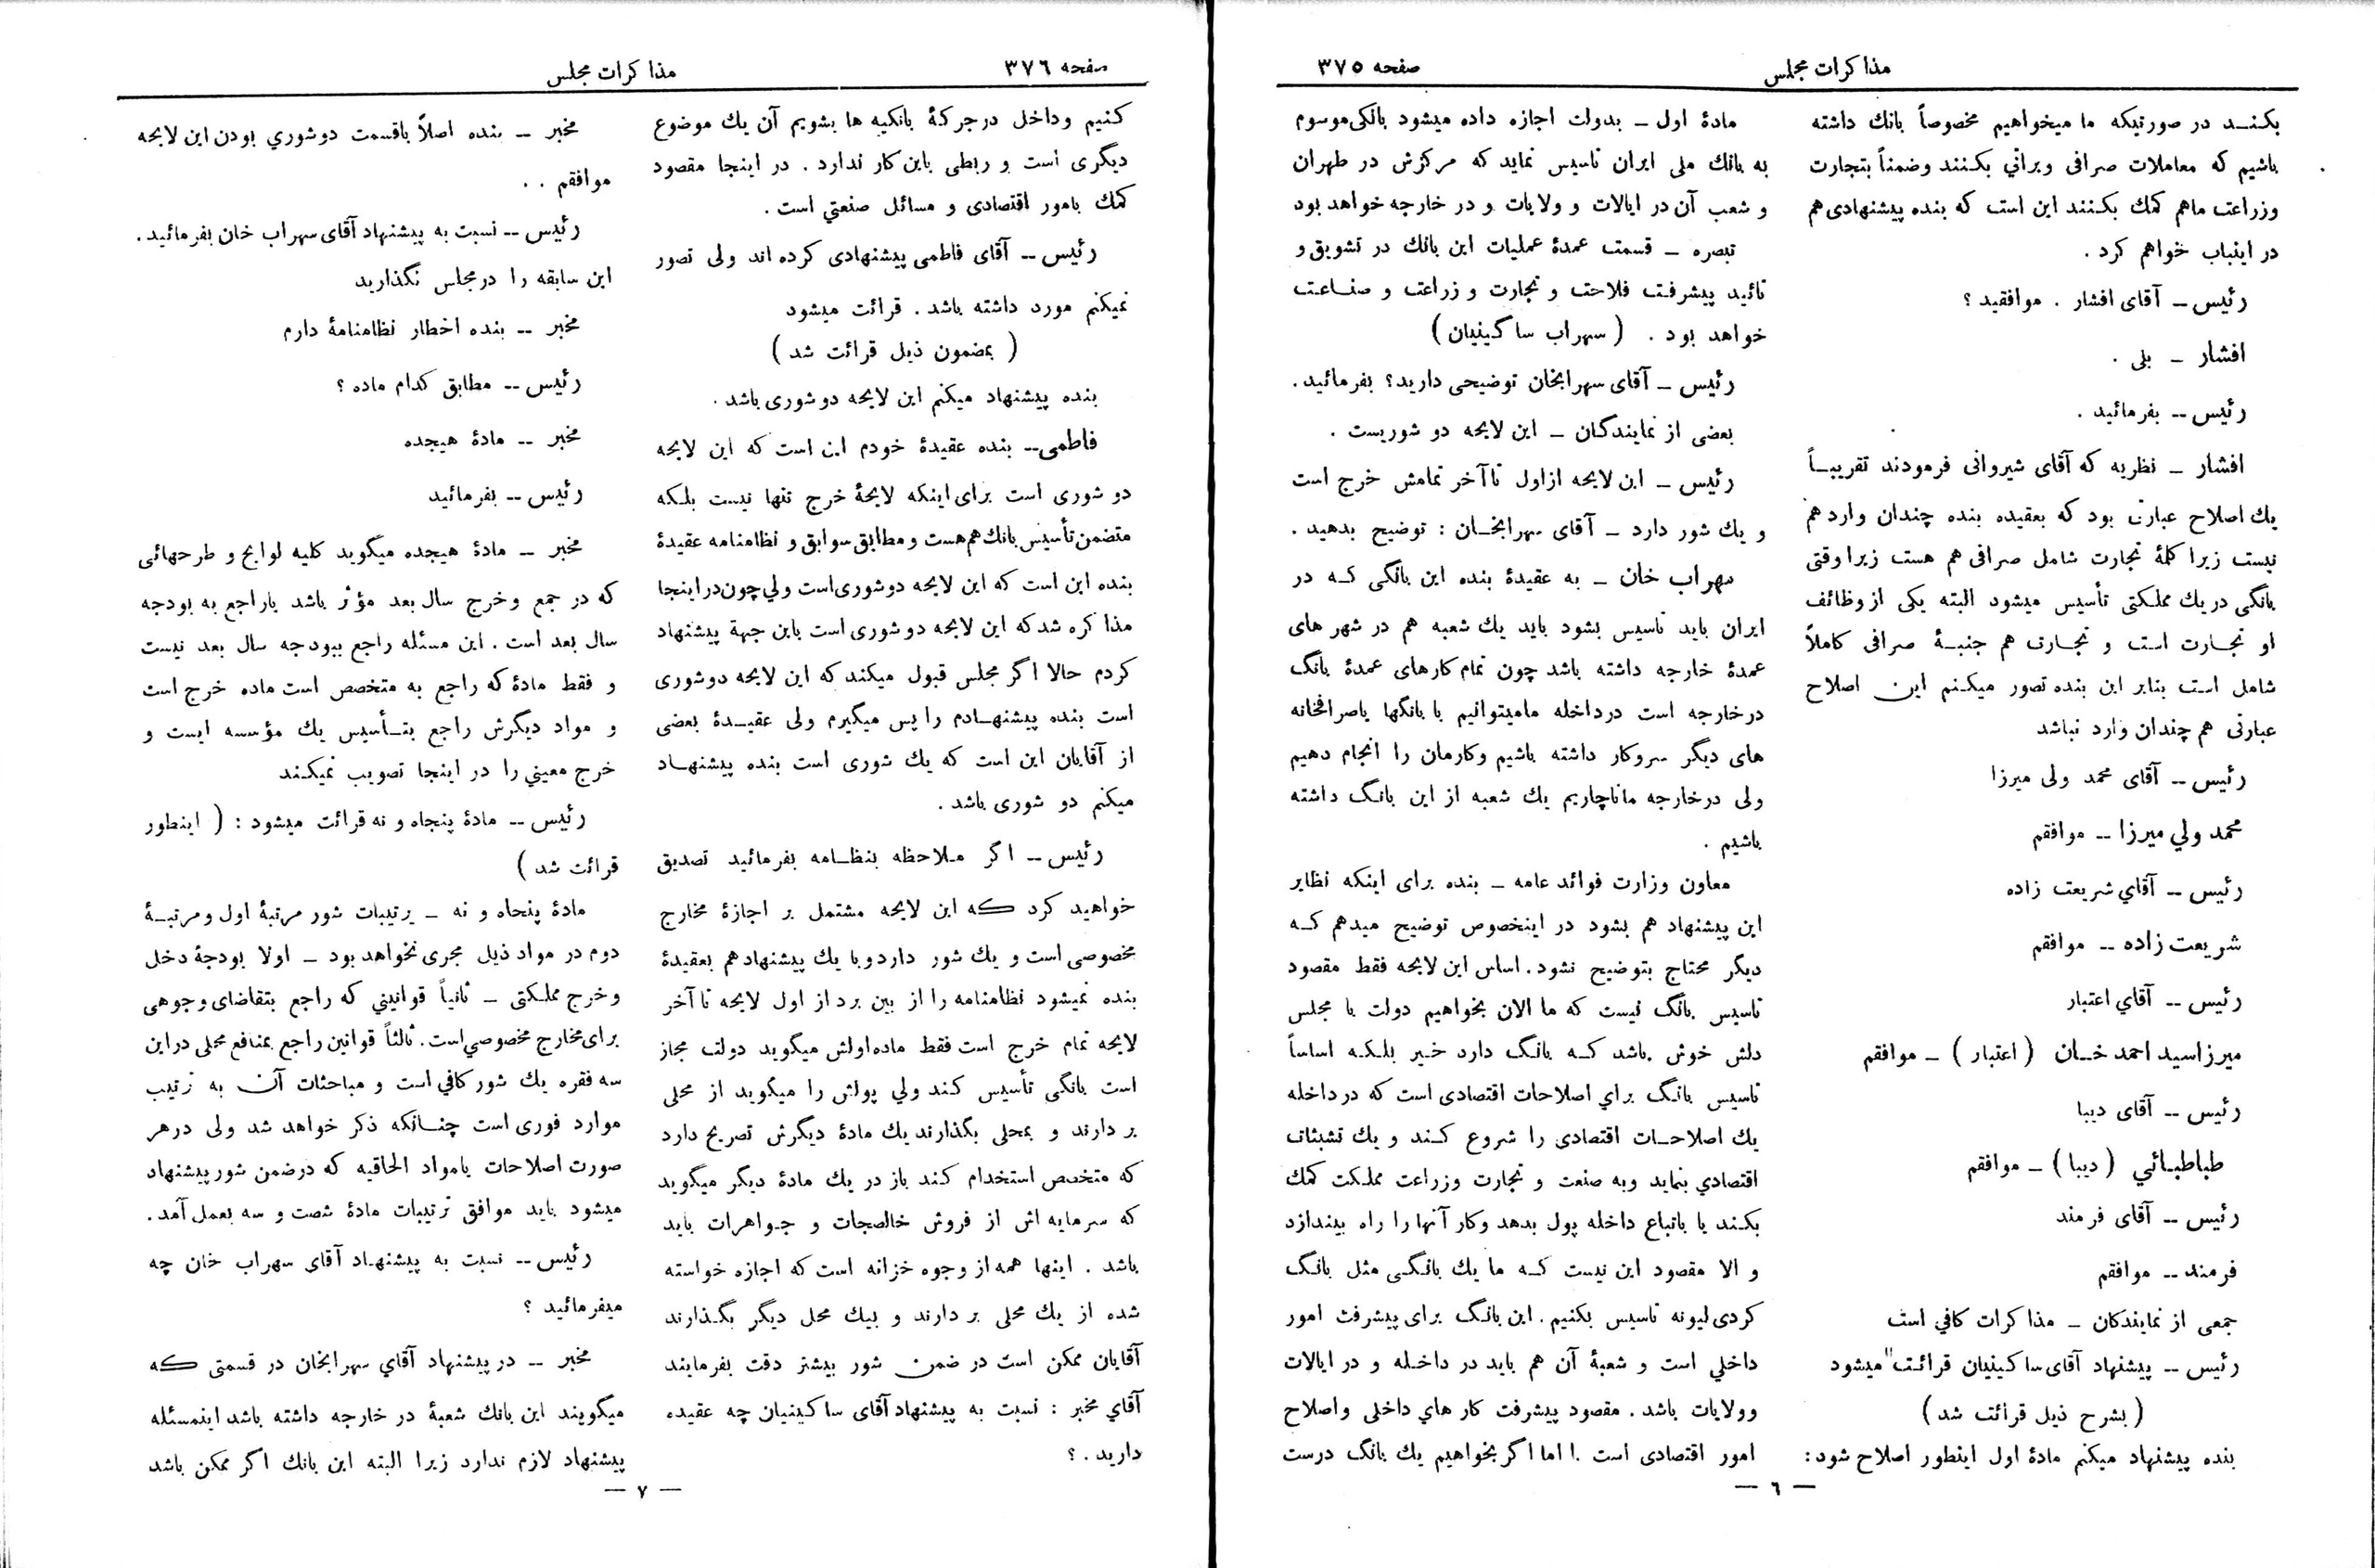 مذاکرات مجلس
صفحه ۳۷۵
بکنـد در صورتیکه ما میخواهیم مخصوصاً بانك داشته
باشیم که معاملات صرافی وبراتي بکنند وضمناً بتجارت
وزراعت ماهم کمك بکنند این است که بنده پیشنهادی هم
در اینباب خواهم کرد .
رئیس – آقای افشار . موافقید ؟
افشار – بلی .
رئیس – بفرمائید .
افشار – نظریه که آقای شیروانی فرمودند تقریبـاً
یك اصلاح عبارتی بود که بعقیده بنده چندان وارد هم
نیست زیرا کلمهٔ تجارت شامل صرافی هم هست زیرا وقتی
بانگی در یك مملکتی تأسیس میشود البته یکی از وظائف
او تجـارت است و تجـارت هم جنبـهٔ صرافی کاملاً
شامل است بنابر این بنده تصور میکـنم این اصلاح
عبارتی هم چندان وارد نباشد
رئیس – آقای محمد ولی میرزا
محمد ولي میرزا – موافقم
رئیس – آقاي شریعت زاده
شریعت زاده – موافقم
رئیس – آقاي اعتبار
میرزا سید احمد خـان (اعتبار) – موافقم
رئیس – آقای دیبا
طباطبـائي (دیبا) – موافقم
رئیس – آقای فرمند
فرمند – موافقم
جمعی از نمایندکان – مذاکرات کافي است
رئیس – پیشنهاد آقای ساکینیان قرائت میشود
(بشرح ذیل قرائت شد)
بنده پیشنهاد میکنم مادهٔ اول اینطور اصلاح شود:
مادهٔ اول – بدولت اجازه داده میشود بانکی موسوم
به بانك ملی ایران تاسیس نماید که مرکزش در طهران
و شعب آن در ایالات و ولایات و در خارجه خواهد بود
تبصره – قسمت عمدهٔ عملیات این بانك در تشویق و
تائید پیشرفت فلاحت و تجارت و زراعت و صنـاعت
خواهد بود . (سهراب ساکینیان)
رئیس – آقای سهرابخان توضیحی دارید؟ بفرمائید .
بعضی از نمایندگان – این لایحه دو شوریست .
رئیس – این لایحه ازاول تاآخر تمامش خرج است
و یك شور دارد – آقای سهرابخـان : توضیح بدهید .
سهراب خان – به عقیدهٔ بنده این بانگی کـه در
ایران باید تاسیس بشود باید یك شعبه هم در شهر های
عمدهٔ خارجه داشته باشد چون تمام کارهای عمدهٔ بانگ
در خارجه است درداخله مامیتوانیم با بانگها یاصرافخانه
های دیگر سروکار داشته باشیم وکارمان را انجام دهیم
ولی درخارجه ماناچاریم یك شعبه از این بانـگ داشته
باشیم .
معاون وزارت فوائد عامه – بنده برای اینکه نظایر
این پیشنهاد هم بشود در اینخصوص توضیح میدهم کـه
دیگر محتاج بتوضیح نشود . اساس این لایحه فقط مقصود
تاسیس بانگ نیست که ما الان بخواهیم دولت یا مجلس
دلش خوش باشد کـه بانـگ دارد خـیر بلـکـه اساساً
تاسیس بانـگ براي اصلاحات اقتصادی است که درداخله
یك اصلاحـات اقتصادی را شروع کـند و یك تشبثات
اقتصادي بنماید وبه صنعت و تجارت وزراعت مملـکت کمك
بکـند یا باتباع داخله پول بدهد وکار آنها را راه بیندازد
و الا مقصود این نیست کـه ما یك بانـگـی مثل بانـگ
کردی لیونه تاسیس بکنیم . این بانـگ برای پیشرفت امور
داخلي است و شعبهٔ آن هم باید در داخـله و در ایالات
وولایات باشد . مقصود پیشرفت کار هاي داخلی واصلاح
امور اقتصادی است . اما اگر بخواهیم یك بانگ درست
— ٦ —
صفحه ۳۷٦
مذاکرات مجلس
کنیم وداخل درجرکهٔ بانکیه ها بشویم آن یك موضوع
دیگری است و ربطی باین کار ندارد . در اینجا مقصود
کمك بامور اقتصادی و مسائل صنعتي است .
رئیس – آقای فاطمی پیشنهادی کرده اند ولی تصور
نمیکنم مورد داشته باشد . قرائت میشود
(بمضمون ذیل قرائت شد)
بنده پیشنهاد میکنم این لایحه دو شوری باشد .
فاطمی – بنده عقیدهٔ خودم این است که این لایحه
دو شوری است برای اینکه لایحهٔ خرج تنها نیست بلـکه
متضمن تأسیس بانك هم هست و مطابق سوابق و نظامنامه عقیدهٔ
بنده این است که این لایحه دو شوری است ولي چون در اینجا
مذاکره شد که این لایحه دو شوری است باین جهة پیشنهاد
کردم حالا اگر مجلس قبول میکند که این لایحه دو شوری
است بنده پیشنهـادم را پس میگیرم ولی عقیـدهٔ بعضی
از آقایان این است که یك شوری است بنده پیشنهـاد
میکنم دو شوری باشد .
رئیس – اگر ملاحظه بنظـامه بفرمائید تصدیق
خواهید کرد کـه این لایحه مشتمل بر اجازهٔ مخارج
مخصوصی است و یك شور دارد وبا یك پیشنهاد هم بعقیدهٔ
بنده نمیشود نظامنامه را از بین برد از اول لایحه تا آخر
لایحه تمام خرج است فقط ماده اولش میگوید دولت مجاز
است بانگی تأسیس کـند ولي پولش را میگوید از محلی
بر دارند و بمحلی بگذارند یك مادهٔ دیگرش تصریح دارد
که متخصص استخدام کـند باز در یك مادهٔ دیگر میگوید
که سرمایه اش از فروش خالصجات و جـواهرات باید
باشد . اینها همه از وجوه خزانه است که اجازه خواسته
شده از یك محلی بر دارند و بیك محل دیگر بگـذارند
آقایان ممکن است در ضمن شور بیشتر دقت بفرمایند
آقاي مخبر : نسبت به پیشنهاد آقای ساکینیان چه عقیده
دارید . ؟
مخبر – بنده اصلاً باقسمت دو شوري بودن این لایحه
موافقم . .
رئیس – نسبت به پیشنهاد آقای سهراب خان بفرمائید .
این سابقه را در مجلس نگذارید
مخبر – بنده اخطار نظامنامهٔ دارم
رئیس – مطابق کدام ماده ؟
مخبر – مادهٔ هیجده
رئیس – بفرمائید
مخبر – مادهٔ هیجده میگوید کلیه لوایح و طرحهائی
که در جمع وخرج سال بعد مؤثر باشد یاراجع به بودجه
سال بعد است . این مسئله راجع ببودجه سال بعد نیست
و فقط مادهٔ که راجع به متخصص است ماده خرج است
و مواد دیگرش راجع بتـأسیس یك مؤسسه ایست و
خرج معیني را در اینجا تصویب نمیکـند
رئیس – مادهٔ پنجاه و نه قرائت میشود : (اینطور
قرائت شد)
مادهٔ پنجاه و نه – ترتیبات شور مرتبهٔ اول ومرتبـهٔ
دوم در مواد ذیل مجری نخواهد بود – اولا بودجهٔ دخل
وخرج مملـکتی – ثانیاً قوانیني که راجع بتقاضای وجوهی
برای مخارج مخصوصي است . ثالثاً قوانین راجع بمنافع محلی در این
سه فقره یك شور کافي است و مباحثات آن به ترتیب
موارد فوری است چنـانکه ذکر خواهد شد ولی درهر
صورت اصلاحات یامواد الحاقیه که درضمن شور پیشنهاد
میشود باید موافق ترتیبات مادهٔ شصت و سه بعمل آمد .
رئیس – نسبت به پیشنهاد آقای سهراب خان چه
میفرمائید ؟
مخبر – در پیشنهاد آقاي سهرابخان در قسمتی کـه
میگویند این بانك شعبهٔ در خارجه داشته باشد اینمسئله
پیشنهاد لازم ندارد زیرا البته این بانك اگر ممکن باشد
— ۷ —